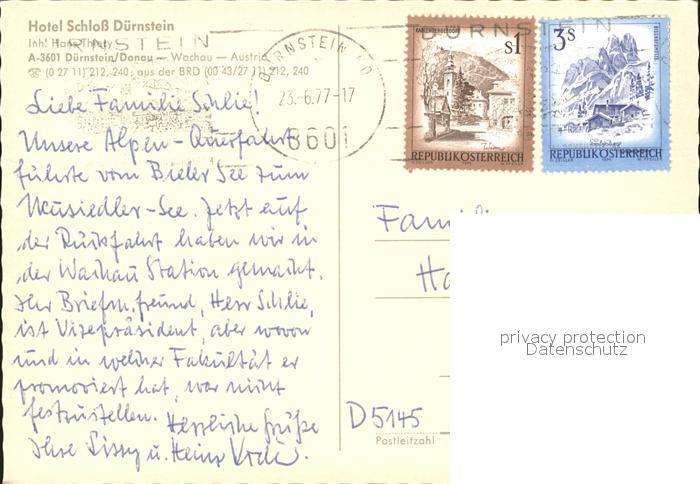 Hotel Schloß Dürnstein
Inh. Hans Thiery
A-3601 Dürnstein/Donau — Wachau — Austria
☏ (0 27 11) 212, 240; aus der BRD (00 43/27 11) 212, 240
DÜRNSTEIN
23.-6.77-17
3601
DÜRNSTEIN
S1
REPUBLIK ÖSTERREICH
3S
REPUBLIK ÖSTERREICH
Liebe Familie Schlie!
Unsere Alpen-Querfahrt
führte vom Bieler See zum
Neusiedler-See. Jetzt auf
der Rückfahrt haben wir in
der Wachau Station gemacht.
Ihr Briefm.freund, Herr Schlie,
ist Vizepräsident, aber wovon
und in welcher Fakultät er
promoviert hat, war nicht
festzustellen. Herzliche Grüße
Ihre Sissy u. Heinz
Fami
D 5145
Postleitzahl
privacy protection
Datenschutz